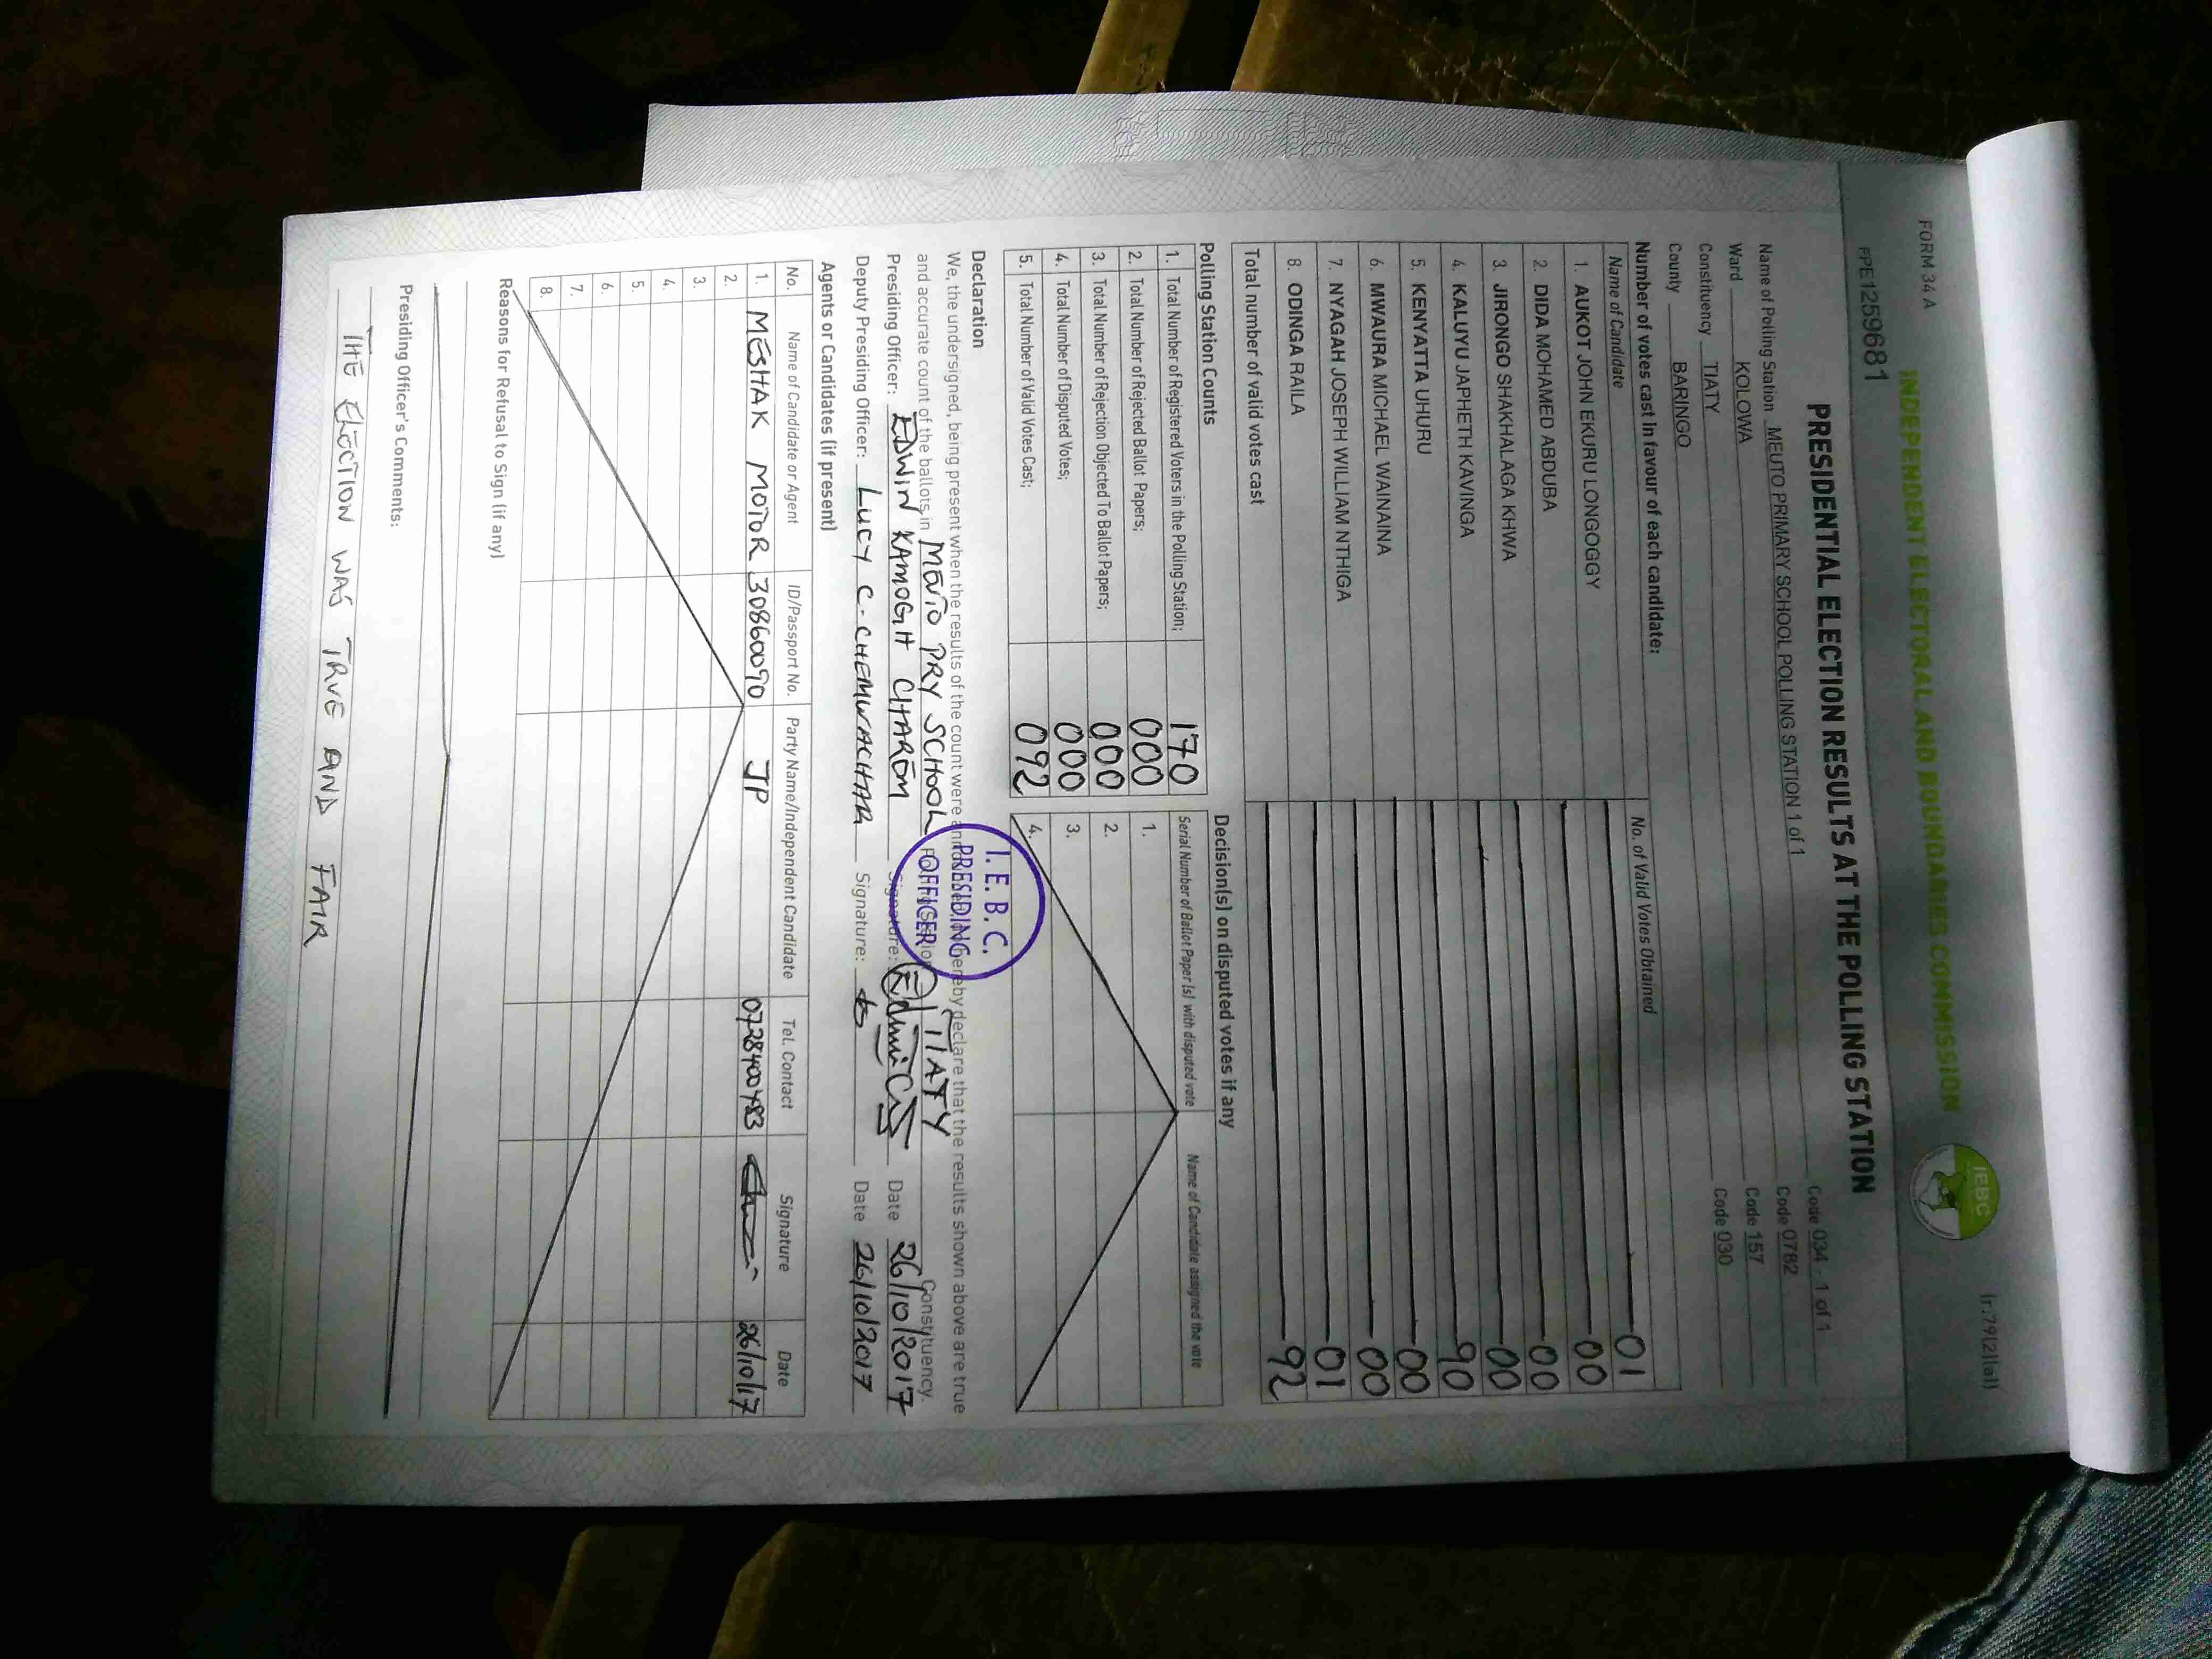 FORM 34 A
(r.79(2)(a))
INDEPENDENT ELECTORAL AND BOUNDARIES COMMISSION
IEBC
PRESIDENTIAL ELECTION RESULTS AT THE POLLING STATION
Name of Polling Station MEUTO PRIMARY SCHOOL POLLING STATION 1 of 1 Code 034 - 1 of 1
Ward KOLOWA Code 0782
Constituency TIATY Code 157
County BARINGO Code 030
Number of votes cast in favour of each candidate:
Name of Candidate No. of Valid Votes Obtained
1. AUKOT JOHN EKURU LONGOGGY 01
2. DIDA MOHAMED ABDUBA 00
3. JIRONGO SHAKHALAGA KHWA 00
4. KALUYU JAPHETH KAVINGA 00
5. KENYATTA UHURU 90
6. MWAURA MICHAEL WAINAINA 00
7. NYAGAH JOSEPH WILLIAM NTHIGA 00
8. ODINGA RAILA 01
Total number of valid votes cast 92
Polling Station Counts
1. Total Number of Registered Voters in the Polling Station; 170
2. Total Number of Rejected Ballot Papers; 000
3. Total Number of Rejection Objected To Ballot Papers; 000
4. Total Number of Disputed Votes; 000
5. Total Number of Valid Votes Cast; 092
Decision(s) on disputed votes if any
Serial Number of Ballot Paper (s) with disputed vote Name of Candidate assigned the vote
1.
2.
3.
4.
Declaration
We, the undersigned, being present when the results of the count were hereby declare that the results shown above are true
and accurate count of the ballots in MEUTO PRY SCHOOL TIATY Constituency.
Presiding Officer: EDWIN KAMOGH CHAREM Signature: Date 26/10/2017
Deputy Presiding Officer: LUCY C. CHEMWACHAR Signature: Date 26/10/2017
I.E.B.C.
PRESIDING
OFFICER
Agents or Candidates (if present)
No. Name of Candidate or Agent ID/Passport No. Party Name/Independent Candidate Tel. Contact Signature Date
1. MESHAK MOTOR 30860090 JP 0728400483 26/10/17
2.
3.
4.
5.
6.
7.
8.
Reasons for Refusal to Sign (if any)
Presiding Officer's Comments:
THE ELECTION WAS TRUE AND FAIR